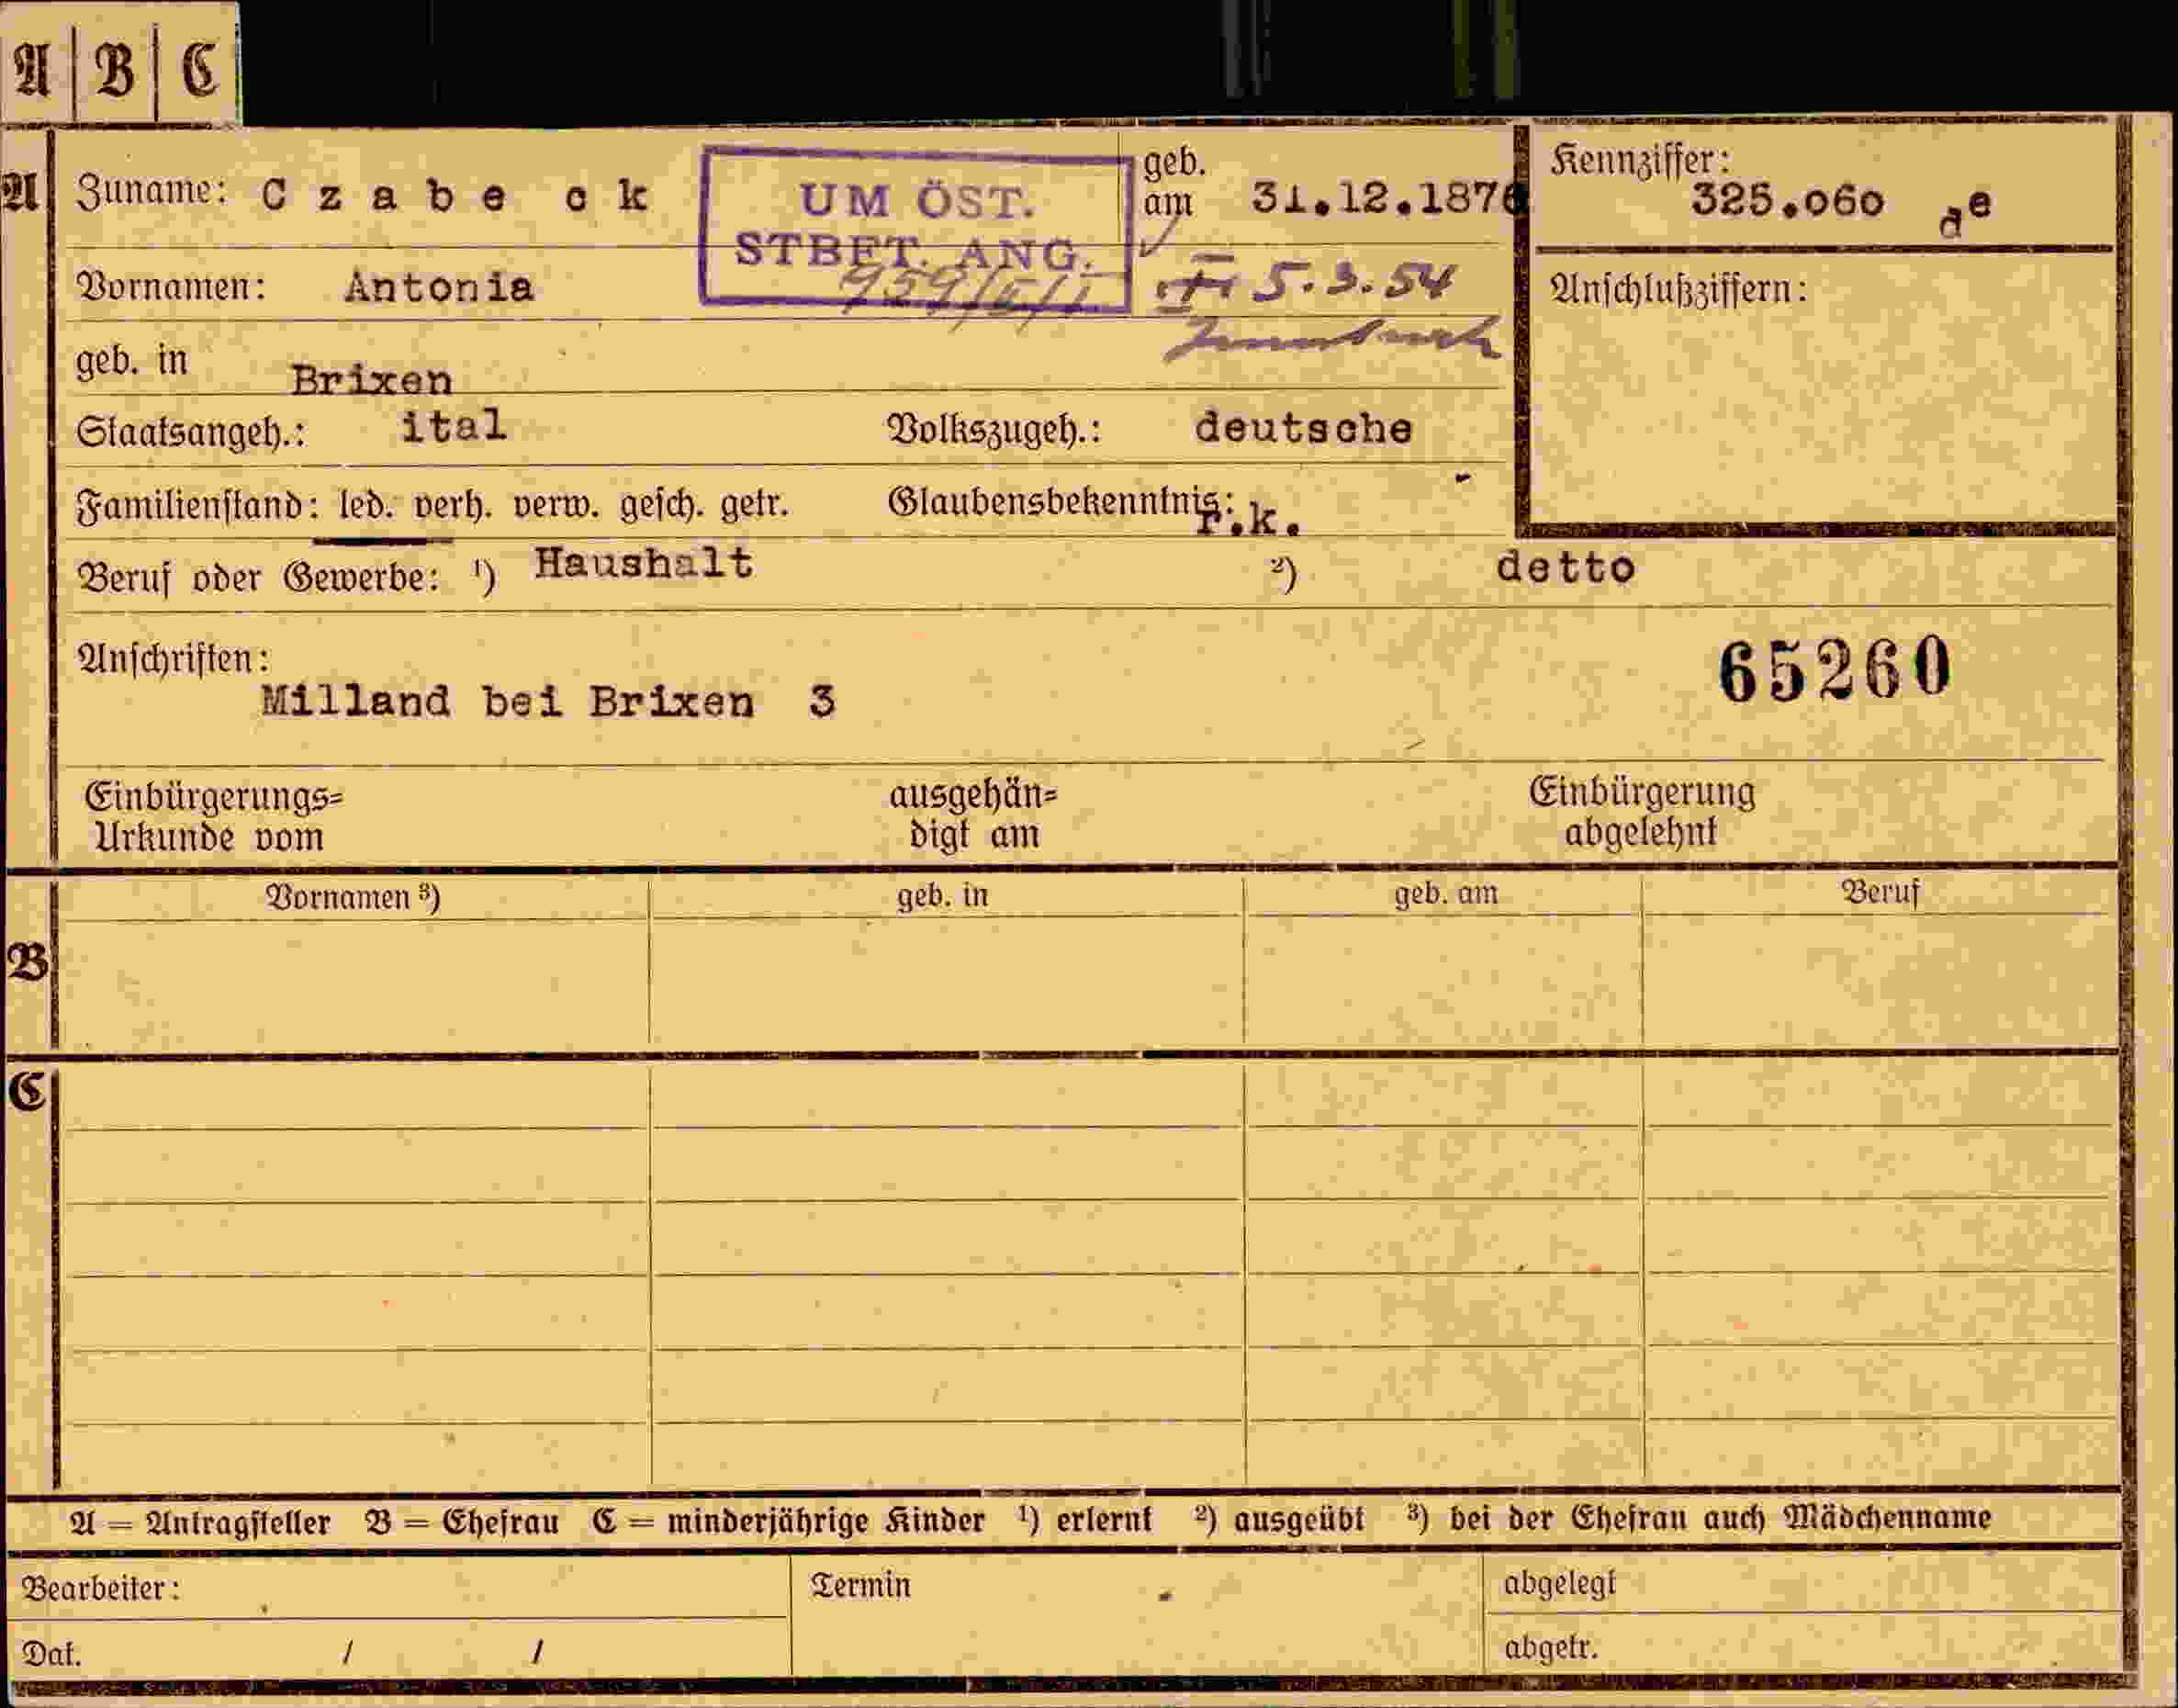 A | B | C
A
Zuname: C z a b e c k
UM ÖST.
STBET. ANG.
geb. am 31.12.1876
Kennziffer:
325.060 de
Vornamen: Antonia
5.3.54
Innsbruck
Anschlußziffern:
geb. in Brixen
Staatsangeh.: ital Volkszugeh.: deutsche
Familienstand: led. verh. verw. gesch. getr. Glaubensbekenntnis: r.k.
Beruf oder Gewerbe: ¹) Haushalt ²) detto
Anschriften:
65260
Milland bei Brixen 3
Einbürgerungs= ausgehän= Einbürgerung
Urkunde vom digt am abgelehnt
Vornamen ³) geb. in geb. am Beruf
B
C
A = Antragsteller B = Ehefrau C = minderjährige Kinder ¹) erlernt ²) ausgeübt ³) bei der Ehefrau auch Mädchenname
Bearbeiter: Termin abgelegt
Dat. / / abgetr.